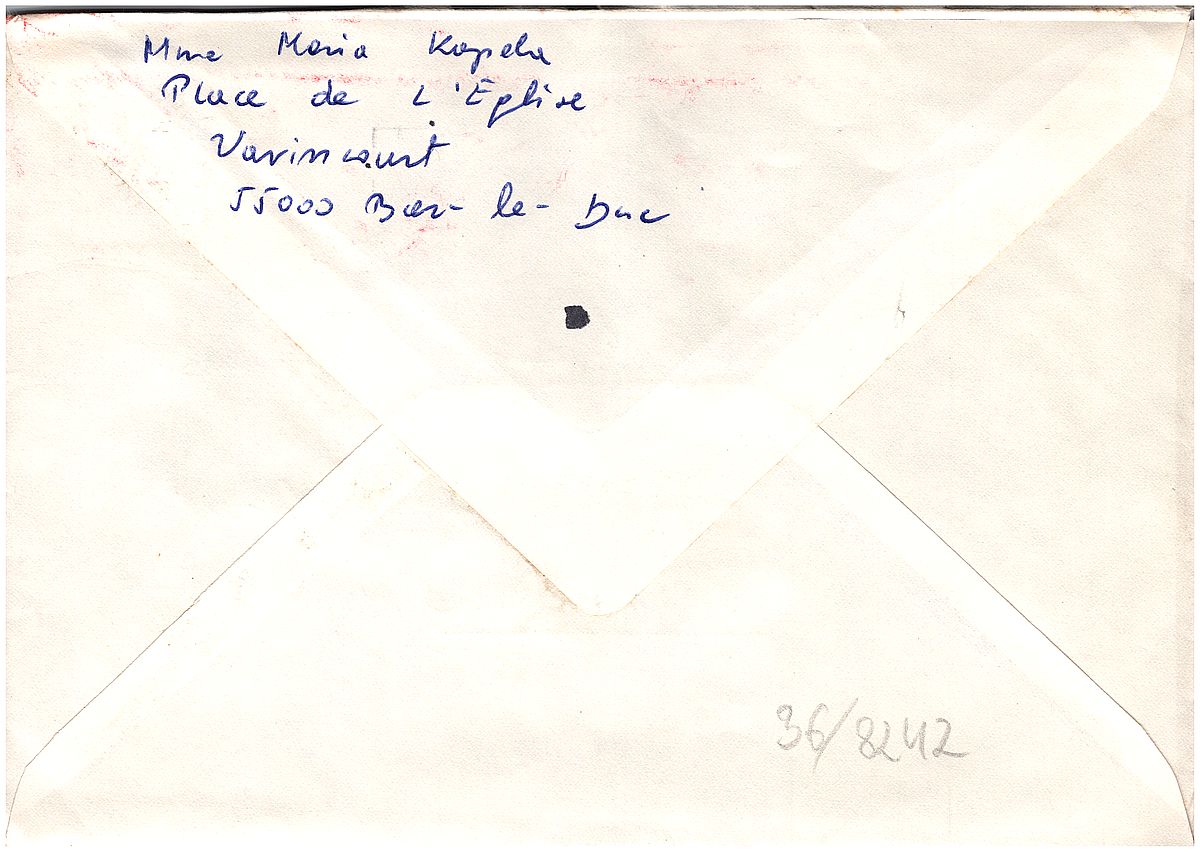 Mme Maria Kapela
Place de L'Eglise
Varincourt
55000 Bar-le-Duc
36/8242